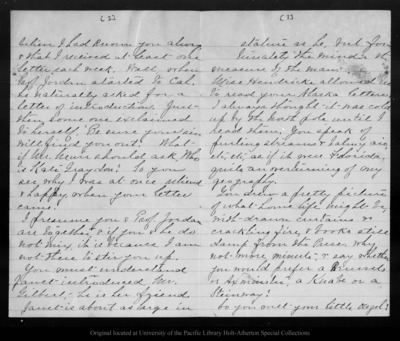 when I had known you always
& that I received at least one
letter each week. Well, when
Prof Jordan started to Cal.
he naturally asked for a
letter of introduction. Just
then some one exclaimed
to herself. Be sure your sin
will find you out! What
if Mr. Muir should ask, Who
is Katie Graydon? So you
see why I was at once relieved
& happy when your letter
came.
I presume you & Prof Jordan
are together, & if you she do
not miss, it is because I am
not there to stir you up.
You must understand
Janet introduced Mr.
Gilbert; he is her friend.
Janet is about as large in
stature as he, but for-
tunately "the mind is the
measure of the man."
Miss Hendricks allowed me
to read your Alaska letters.
I always thought it was cold
up by the North pole until I
read them. You speak of
purling streams & balmy air,
etc, etc, as if it were Florida,
quite an overturning of my
geography.
You drew a pretty picture
of what home life might be,
with drawn curtains &
crackling fire, & books still
damp from the Press. Why
not more minute, & say whether
you would prefer a Brussels
or Axminster, a Knabe or a
Steinway!
So you met your little Angel!
Original located at University of the Pacific Library Holt-Atherton Special Collections